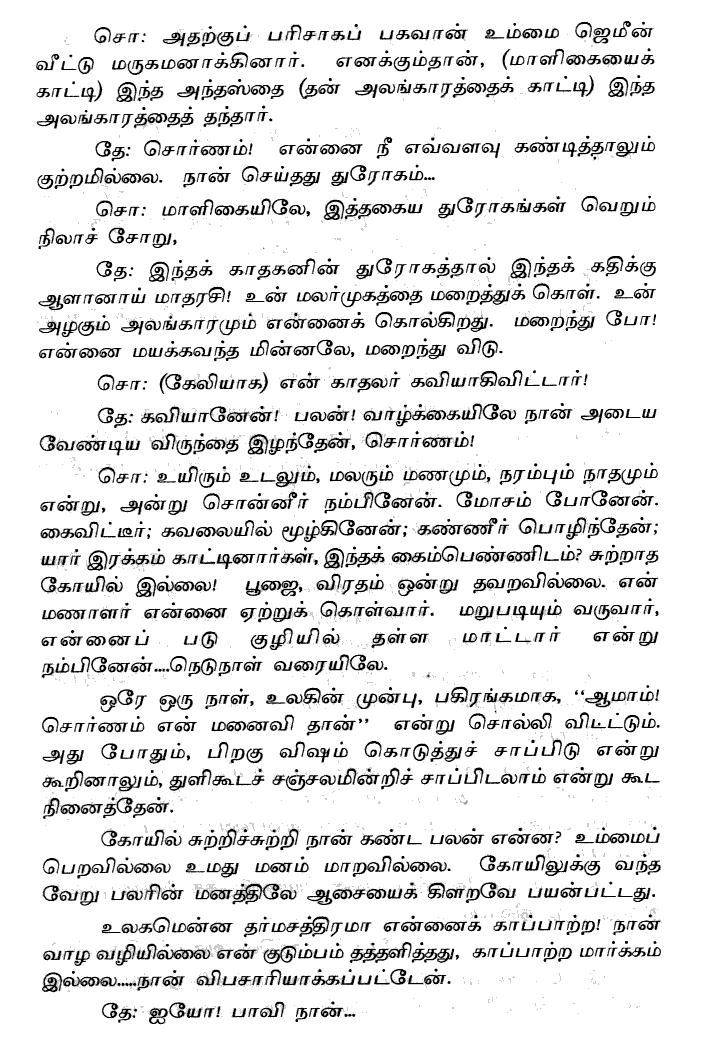 சொ: அதற்குப் பரிசாகப் பகவான் உம்மை ஜெமீன்
வீட்டு மருகமனாக்கினார். எனக்கும்தான், (மாளிகையைக்
காட்டி) இந்த அந்தஸ்தை (தன் அலங்காரத்தைக் காட்டி) இந்த
அலங்காரத்தைத் தந்தார்.
தே: சொர்ணம்! என்னை நீ எவ்வளவு கண்டித்தாலும்
குற்றமில்லை. நான் செய்தது துரோகம்...
சொ: மாளிகையிலே, இத்தகைய துரோகங்கள் வெறும்
நிலாச் சோறு,
தே: இந்தக் காதகனின் துரோகத்தால் இந்தக் கதிக்கு
ஆளானாய் மாதரசி! உன் மலர்முகத்தை மறைத்துக் கொள். உன்
அழகும் அலங்காரமும் என்னைக் கொல்கிறது. மறைந்து போ!
என்னை மயக்கவந்த மின்னலே, மறைந்து விடு.
சொ: (கேலியாக) என் காதலர் கவியாகிவிட்டார்!
தே: கவியானேன்! பலன்! வாழ்க்கையிலே நான் அடைய
வேண்டிய விருந்தை இழந்தேன், சொர்ணம்!
சொ: உயிரும் உடலும், மலரும் மணமும், நரம்பும் நாதமும்
என்று, அன்று சொன்னீர் நம்பினேன். மோசம் போனேன்.
கைவிட்டீர்; கவலையில் மூழ்கினேன்; கண்ணீர் பொழிந்தேன்;
யார் இரக்கம் காட்டினார்கள், இந்தக் கைம்பெண்ணிடம்? சுற்றாத
கோயில் இல்லை! பூஜை, விரதம் ஒன்று தவறவில்லை. என்
மணாளர் என்னை ஏற்றுக் கொள்வார். மறுபடியும் வருவார்,
என்னைப் படு குழியில் தள்ள மாட்டார் என்று
நம்பினேன்....நெடுநாள் வரையிலே.
ஒரே ஒரு நாள், உலகின் முன்பு, பகிரங்கமாக, “ஆமாம்!
சொர்ணம் என் மனைவி தான்” என்று சொல்லி விட்டடும்.
அது போதும், பிறகு விஷம் கொடுத்துச் சாப்பிடு என்று
கூறினாலும், துளிகூடச் சஞ்சலமின்றிச் சாப்பிடலாம் என்று கூட
நினைத்தேன்.
கோயில் சுற்றிச்சுற்றி நான் கண்ட பலன் என்ன? உம்மைப்
பெறவில்லை உமது மனம் மாறவில்லை. கோயிலுக்கு வந்த
வேறு பலரின் மனத்திலே ஆசையைக் கிளறவே பயன்பட்டது.
உலகமென்ன தர்மசத்திரமா என்னைக் காப்பாற்ற! நான்
வாழ வழியில்லை என் குடும்பம் தத்தளித்தது, காப்பாற்ற மார்க்கம்
இல்லை.....நான் விபசாரியாக்கப்பட்டேன்.
தே: ஐயோ! பாவி நான்...